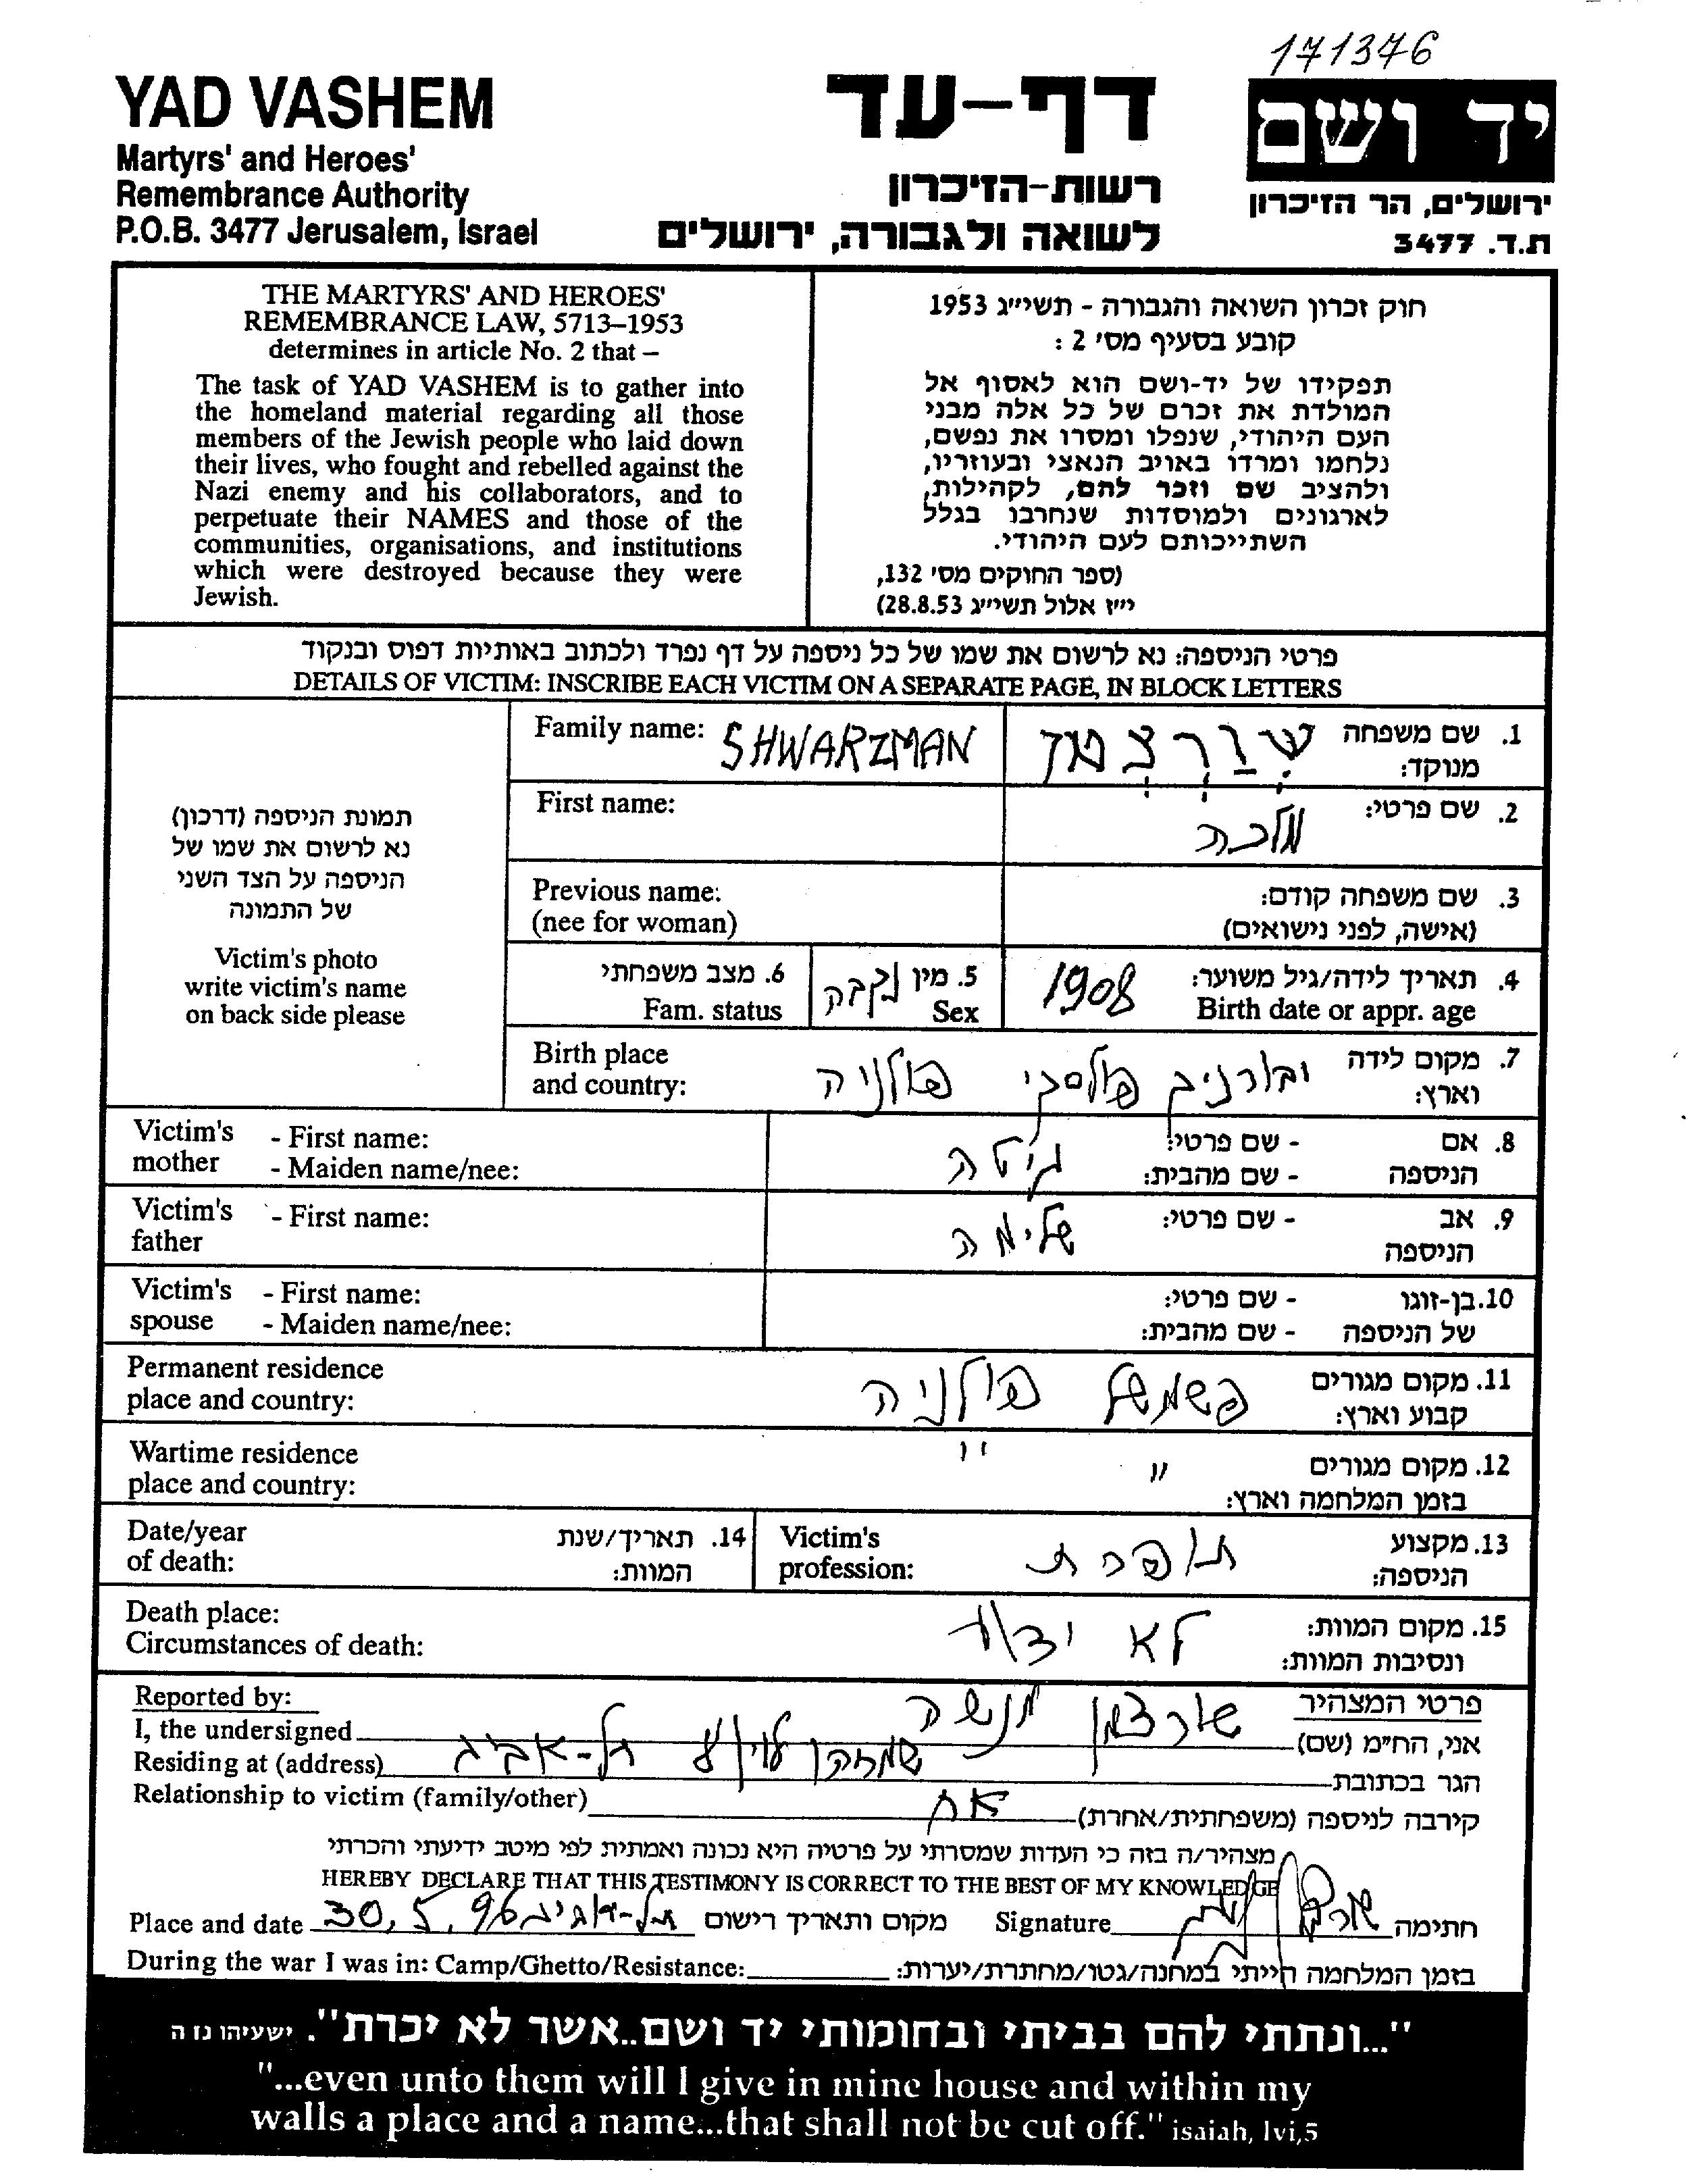 171376
YAD VASHEM
Martyrs' and Heroes'
Remembrance Authority
P.O.B. 3477 Jerusalem, Israel
דף-עד
רשות-הזיכרון
לשואה ולגבורה, ירושלים
יד ושם
ירושלים, הר הזיכרון
ת.ד. 3477
THE MARTYRS' AND HEROES'
REMEMBRANCE LAW, 5713–1953
determines in article No. 2 that –
The task of YAD VASHEM is to gather into
the homeland material regarding all those
members of the Jewish people who laid down
their lives, who fought and rebelled against the
Nazi enemy and his collaborators, and to
perpetuate their NAMES and those of the
communities, organisations, and institutions
which were destroyed because they were
Jewish.
חוק זכרון השואה והגבורה - תשי״ג 1953
קובע בסעיף מס' 2 :
תפקידו של יד-ושם הוא לאסוף אל
המולדת את זכרם של כל אלה מבני
העם היהודי, שנפלו ומסרו את נפשם,
נלחמו ומרדו באויב הנאצי ובעוזריו,
ולהציב שם וזכר להם, לקהילות,
לארגונים ולמוסדות שנחרבו בגלל
השתייכותם לעם היהודי.
(ספר החוקים מס' 132,
י״ז אלול תשי״ג 28.8.53)
פרטי הניספה: נא לרשום את שמו של כל ניספה על דף נפרד ולכתוב באותיות דפוס ובנקוד
DETAILS OF VICTIM: INSCRIBE EACH VICTIM ON A SEPARATE PAGE, IN BLOCK LETTERS
תמונת הניספה (דרכון)
נא לרשום את שמו של
הניספה על הצד השני
של התמונה
Victim's photo
write victim's name
on back side please
Family name: SHWARZMAN
1. שם משפחה שורצמן
מנוקד:
First name:
2. שם פרטי: מלכה
Previous name:
(nee for woman)
3. שם משפחה קודם:
(אישה, לפני נישואים)
4. תאריך לידה/גיל משוער: 1908
Birth date or appr. age
5. מין נקבה
Sex
6. מצב משפחתי
Fam. status
Birth place
and country:
7. מקום לידה פולניה
וארץ:
Victim's mother - First name:
- Maiden name/nee:
8. אם - שם פרטי: גיטה
הניספה - שם מהבית:
Victim's father - First name:
9. אב - שם פרטי: שלימה
הניספה
Victim's spouse - First name:
- Maiden name/nee:
10. בן-זוגו - שם פרטי:
של הניספה - שם מהבית:
Permanent residence
place and country:
11. מקום מגורים פולניה
קבוע וארץ:
Wartime residence
place and country:
12. מקום מגורים " "
בזמן המלחמה וארץ:
Date/year
of death:
14. תאריך/שנת
המוות:
Victim's
profession:
13. מקצוע תופרת
הניספה:
Death place:
Circumstances of death:
15. מקום המוות: לא ידוע
ונסיבות המוות:
Reported by:
פרטי המצהיר
I, the undersigned
אני, הח״מ (שם) שורצמן מנשה
Residing at (address)
הגר בכתובת תל-אביב
Relationship to victim (family/other)
קירבה לניספה (משפחתית/אחרת) אח
מצהיר/ה בזה כי העדות שמסרתי על פרטיה היא נכונה ואמתית לפי מיטב ידיעתי והכרתי
HEREBY DECLARE THAT THIS TESTIMONY IS CORRECT TO THE BEST OF MY KNOWLEDGE
Place and date 30.5.96 תל-אביב מקום ותאריך רישום Signature חתימה
During the war I was in: Camp/Ghetto/Resistance: בזמן המלחמה הייתי במחנה/גטו/מחתרת/יערות:
"...ונתתי להם בביתי ובחומותי יד ושם..אשר לא יכרת". ישעיהו נו ה
"...even unto them will I give in mine house and within my
walls a place and a name...that shall not be cut off." isaiah, lvi,5